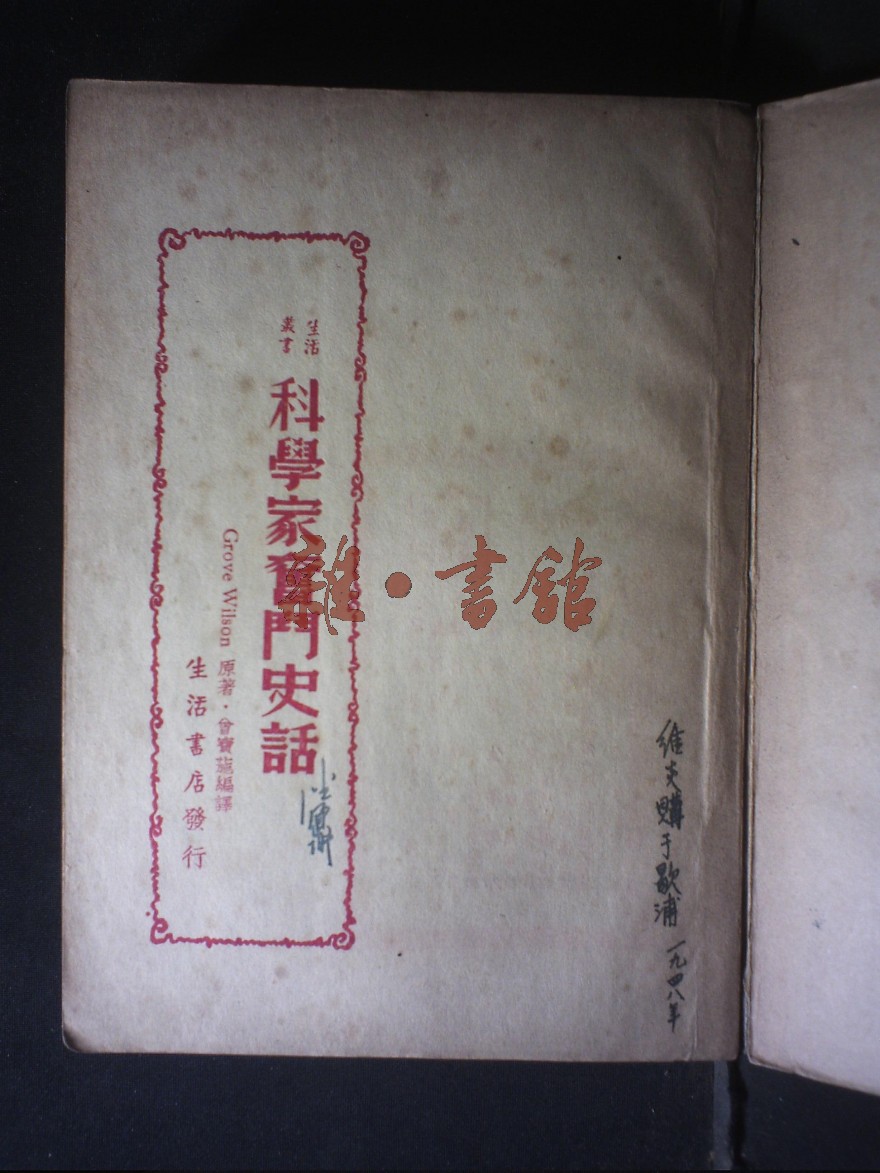 生活
叢書
科學家奮鬥史話
Grove Wilson 原著·曾寶施編譯
生活書店發行
雜·書館
維夫購于歇浦 一九四八年